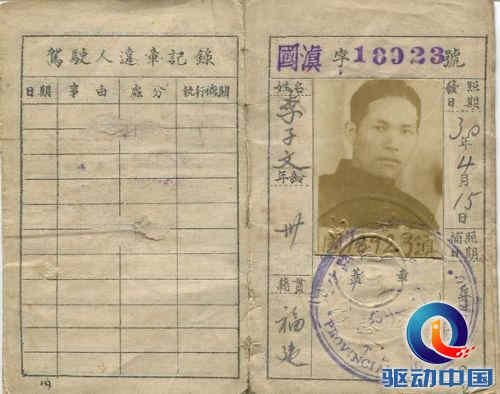 駕駛人違章記錄
日期 事由 處分 執行機關
國滇字18923號
發照日期
30年4月15日
補照日期
姓名
李子文
年齡
卅
籍貫
福建
驱动中国